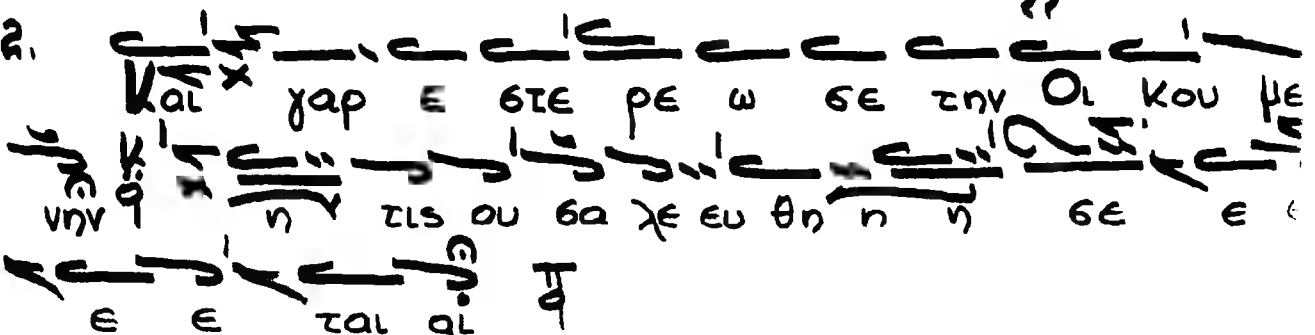 2.
Και γαρ ε στε ρε ω σε την Οι κου με
νην η τις ου σα λε ευ θη η η σε ε ε
ε ε ται αι